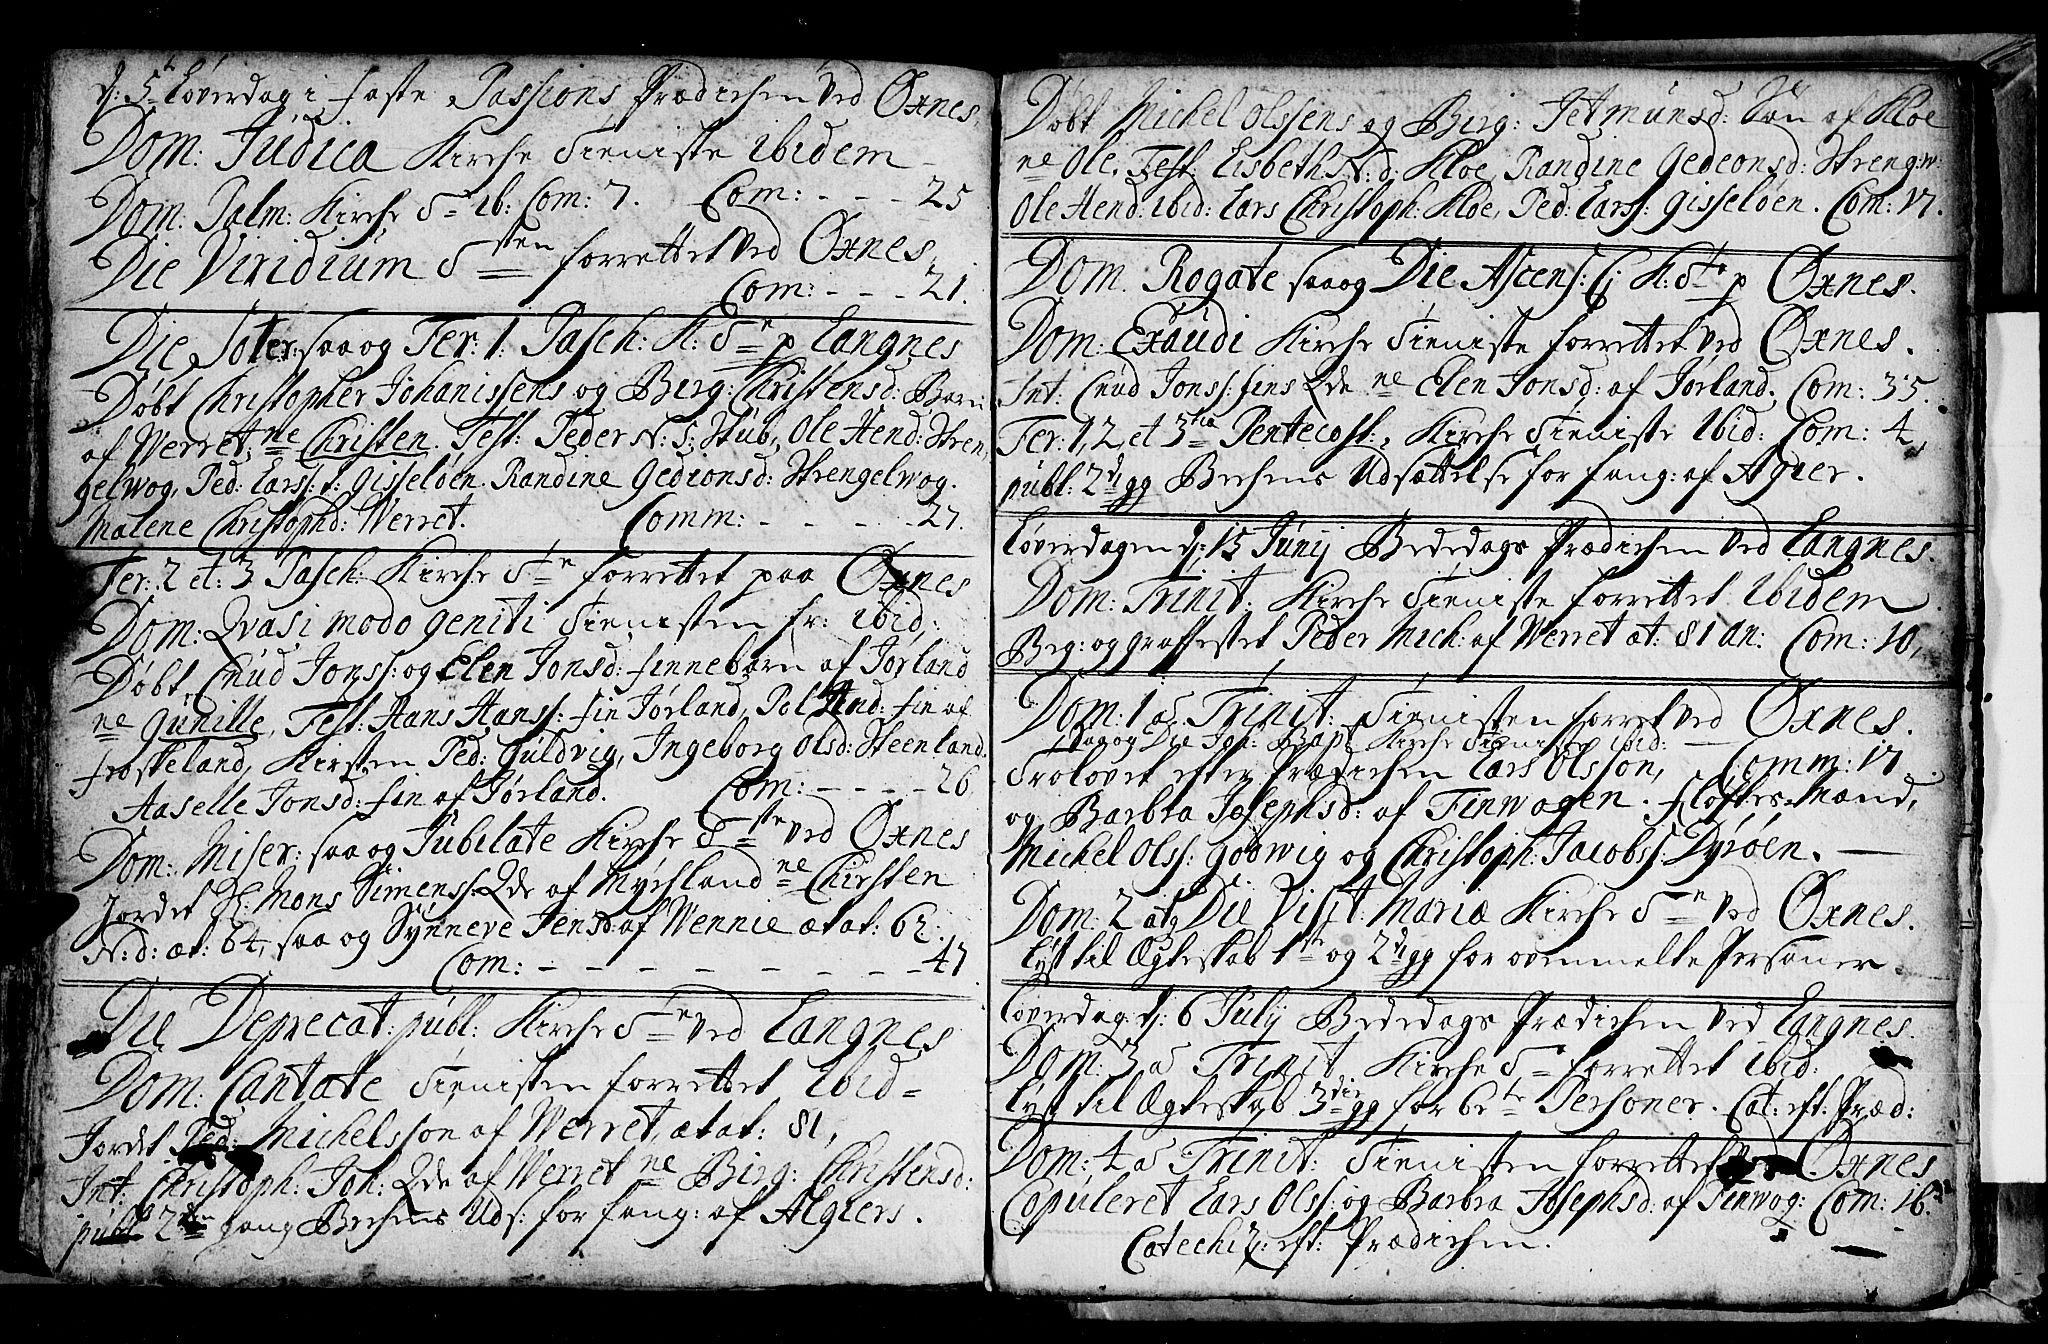 d: 5te Løverdag i faste Passions Prædichen ved Øxnes.
Dom: Judica Kirche Tieniste ibidem
Com: - - - 25
Dom: Palm: Kirche T ib: Com: 7.
Die Viridium Tsten forrettet ved Øxnes.
Com: - - - 21.
Die saa og Fer: 1. Pasch: K: Tn p Langnes
Døbt Christopher Johanissens og Berg: Christensd: Barn
af Werret, ne Christen. Test: Peder N: S: Stub, Ole Hend: Stren
gelwog, Ped: Larss: t: Gisseløen. Randine Gedionsd: Strengelwog.
Malene Christophd: Werret. Comm: - - - - 27.
Fer: 2 et: 3 Pasch: Kirche Tne forrettet paa Øxnes
Dom: Qvasi modo geniti Tienisten fr: ibid:
Døbt Cnud Jonss: og Elen Jonsd: finnebarn af Jørland
ne Gunille, Test: Hans Hanss: fin Jørland, Pol And: fin af
froskeland, Kirsten Ped: Guldvig, Ingeborg Olsd: Steenland.
Aaselle Jonsd: fin af Jørland. Com: - - - - 26
Dom: Miser: saa og Jubilate Kirche Tste ved Øxnes
Jordet Mons Simenss: Qde af Myhsland ne Chirsten
N: d: æt: 64, saa og Synneve Jensd: af Wennie ætat: 62.
Com: - - - - - - - - - 47
Die Deprecat: publ: Kirche Tne ved Langnes
Dom: Cantate Tienisten forrettet Ibid-
Jordt Ped: Michelssøn af Werret, ætat: 81,
Int: Christoph: Joh: Qde af Werret ne Birg: Christensd:
publ: 2den gang Bechens Uds: for fang: af Algiers.
Døbt Michel Olssens og Berg: Jetmunsd: Søn af Kloe
ne Ole, Test: Lisbeth N: d: Kloe, Randine Gedeonsd: Strengw.
Ole Hend: ibid: Lars Christoph: Kloe, Ped: Larss: Gisseløen. Com: 17.
Dom. Rogate saa og Die Ascens: Cj K: Ste p Øxnes.
Dom: Exaudi Kirche Tieniste forrettet ved Øxnes.
Int: Cnud Jonss: fins Qde ne Elen Jonsd: af Jørland. Com: 35.
Fer: 1, 2, et 3tia Pentecost:, Kirche Tieniste Ibid: Com: 4,
publ: 2d gg Bechens Udsættelse for fang: af Algier.
Løverdagen d: 15 Junij Bededags Prædichen ved Langnes.
Dom: Trinit: Kirche Tieniste forrettet Ibidem
Beg: og graffestet Peder Mich: af Werret æt: 81 an: Com: 10,
Dom: 1 a Trinit: Tienisten forret ved Øxnes.
saa og Die Joh: Bapt Kirche Tieniste ibid:
Trolovet efter Prædichen Lars Olsson, Comm: 17
og Barbra Josephsd: af Finwogen. fløttes Mænd,
Michel Olss: Godwig og Christoph: Jacobss: Dyrøen.
Dom: 2 atg Die Visit: Mariæ Kirche Tn ved Øxnes.
Lyst til Ægteskab 1ste og 2d gg for ovenmelte Personer.
Løverdag: d: 6 Julij Bededags Prædichen ved Langnes.
Dom: 3 a Trinit Kirche T forrettet ibid:
Lyst til Ægteskab 3die gg for Personer. Cat: eft: Præd:
Dom: 4 a Trinit: Tienisten forrettet ved Øxnes
Copuleret Lars Olss: og Barbra Josephsd: af Finwog: Com: 16.
Catechiz: eft: Prædichen.